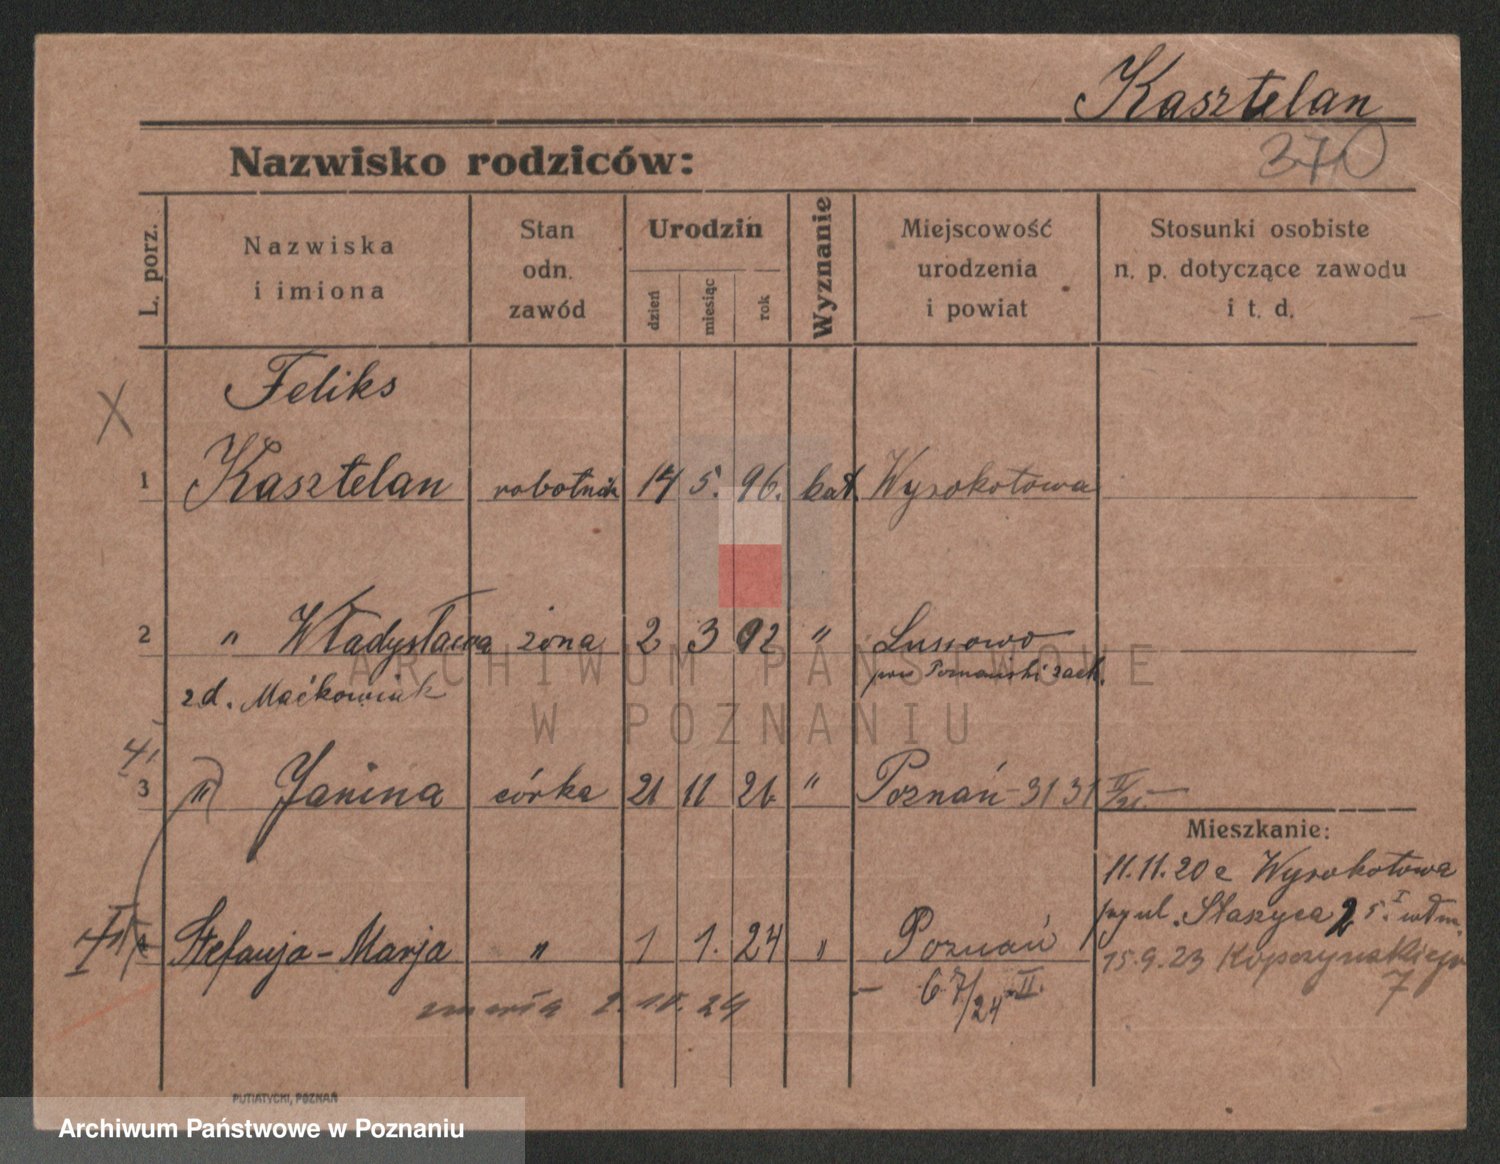 Kasztelan
370
Nazwisko rodziców:
L. porz.
Nazwiska
i imiona
Stan
odn.
zawód
Urodzin
dzień
miesiąc
rok
Wyznanie
Miejscowość
urodzenia
i powiat
Stosunki osobiste
n. p. dotyczące zawodu
i t. d.
X
Feliks
1 Kasztelan robotnik 14 5. 96. kat. Wysokotowa
2 " Władysława żona 2 3 92 " Lussowo
z d. Maćkowiak pow Poznański zach.
3 " Janina córka 21 11 21 Poznań 31 31 II/21
Mieszkanie:
11.11.20 z Wysokotowa
przy ul. Staszyca 2 5. I wdm.
4 Stefanja-Marja " 1 1. 24 " Poznań
15.9.23 Kopczyńskiego
7
zmarła 2.10.24
67/24 II.
PUTIATYCKI, POZNAŃ
ARCHIWUM PAŃSTWOWE
W POZNANIU
Archiwum Państwowe w Poznaniu